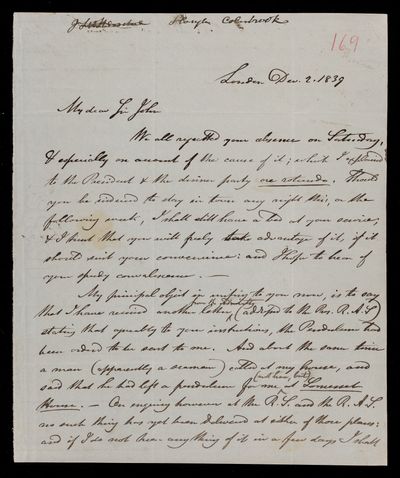 Slough Colnbrook
169
London Dec. 2. 1839
My dear Sir John
We all regretted your absence on Saturday,
& especially on account of the cause of it; which I explained
to the President & the dinner party ore rotundo. Should
you be induced to stay in town any night this, or the
following week, I shall still have a bed at your service;
& I trust that you will freely take advantage of it, if it
should suit your convenience: and I hope to hear of
your speedy convalescence. —
My principal object in writing to you now, is to say
that I have received another letter, (addressed to the Pres. R.A.S)
stating that agreeably to your instructions, the Pendulum had
been ordered to be sent to me. And about the same time
a man (apparently a seaman) called at my house, and
said that he had left a pendulum for me at Somerset
House. — On enquiry however at the R.S. and the R.A.S.
no such thing has yet been delivered at either of those places:
and if I do not hear anything of it in a few days I shall